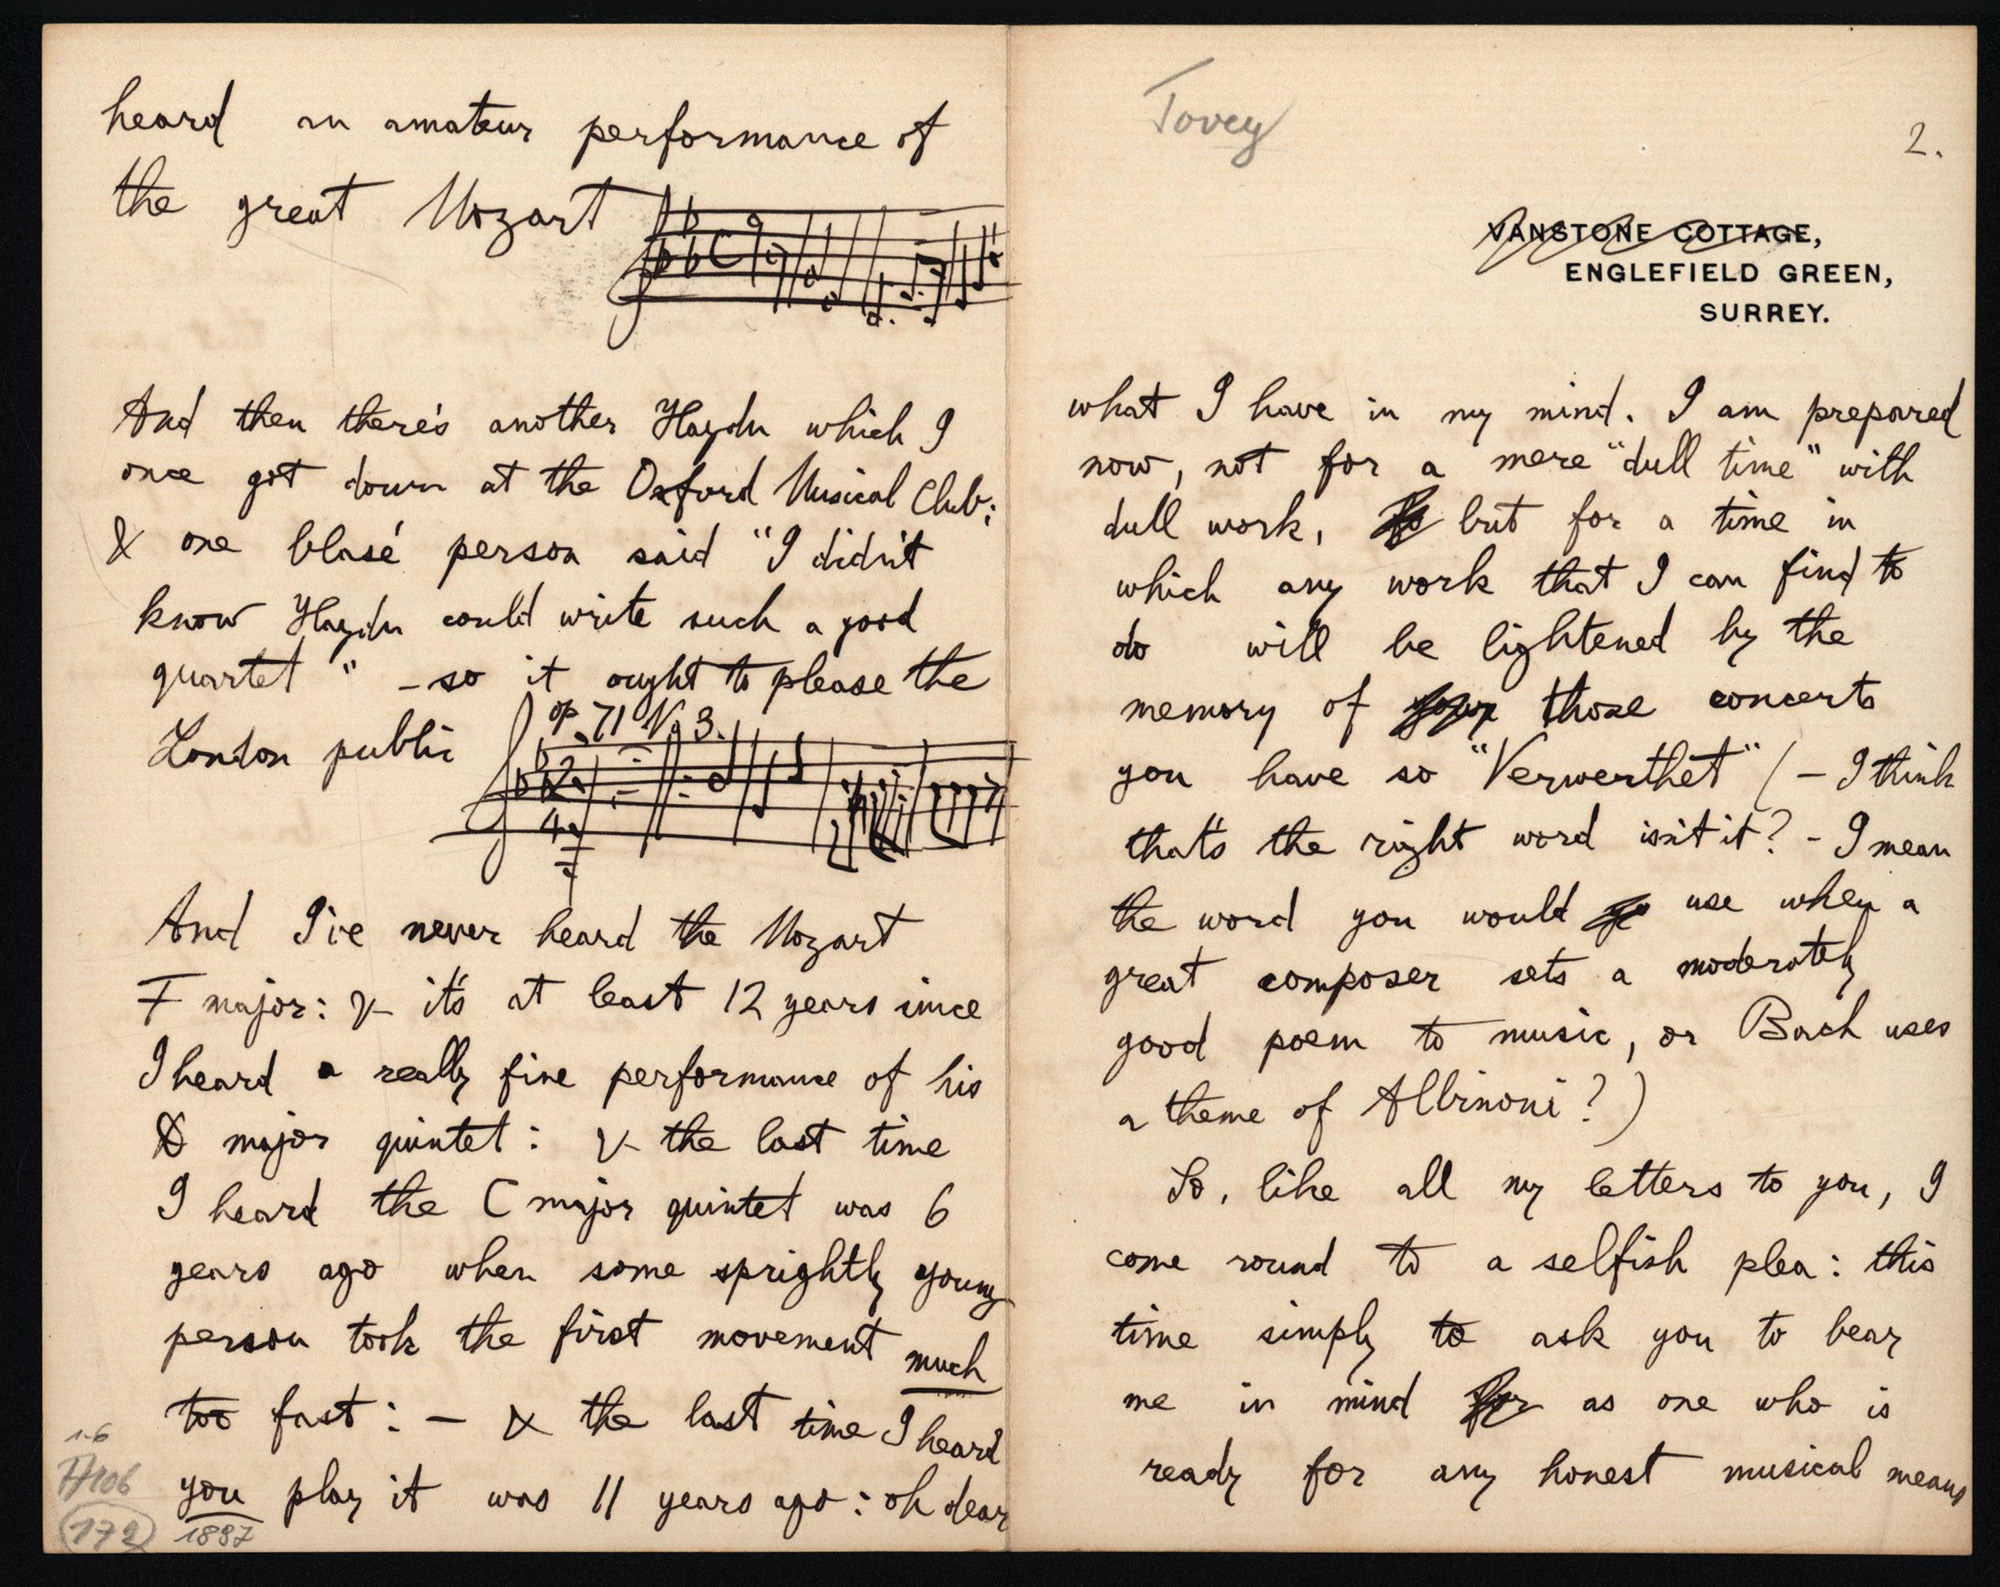 heard an amateur performance of
the great Mozart
And then there's another Haydn which I
once got down at the Oxford Musical Club;
& one blasé person said "I didn't
know Haydn could write such a good
quartet" – so it ought to please the
op 71 No 3.
London public
2
4
And I've never heard the Mozart
F major: & it's at least 12 years since
I heard a really fine performance of his
D major quintet: & the last time
I heard the C major quintet was 6
years ago when some sprightly young
person took the first movement much
too fast: – & the last time I heard
you play it was 11 years ago: oh dear
1897
172
Tovey
2.
VANSTONE COTTAGE,
ENGLEFIELD GREEN,
SURREY.
what I have in my mind. I am prepared
now, not for a mere "dull time" with
dull work, but for a time in
which any work that I can find to
do will be lightened by the
memory of those concerts
you have so "Verwerthet" (– I think
that's the right word isn't it? – I mean
the word you would use when a
great composer sets a moderately
good poem to music, or Bach uses
a theme of Albinoni?)
So, like all my letters to you, I
come round to a selfish plea: this
time simply to ask you to bear
me in mind as one who is
ready for any honest musical means